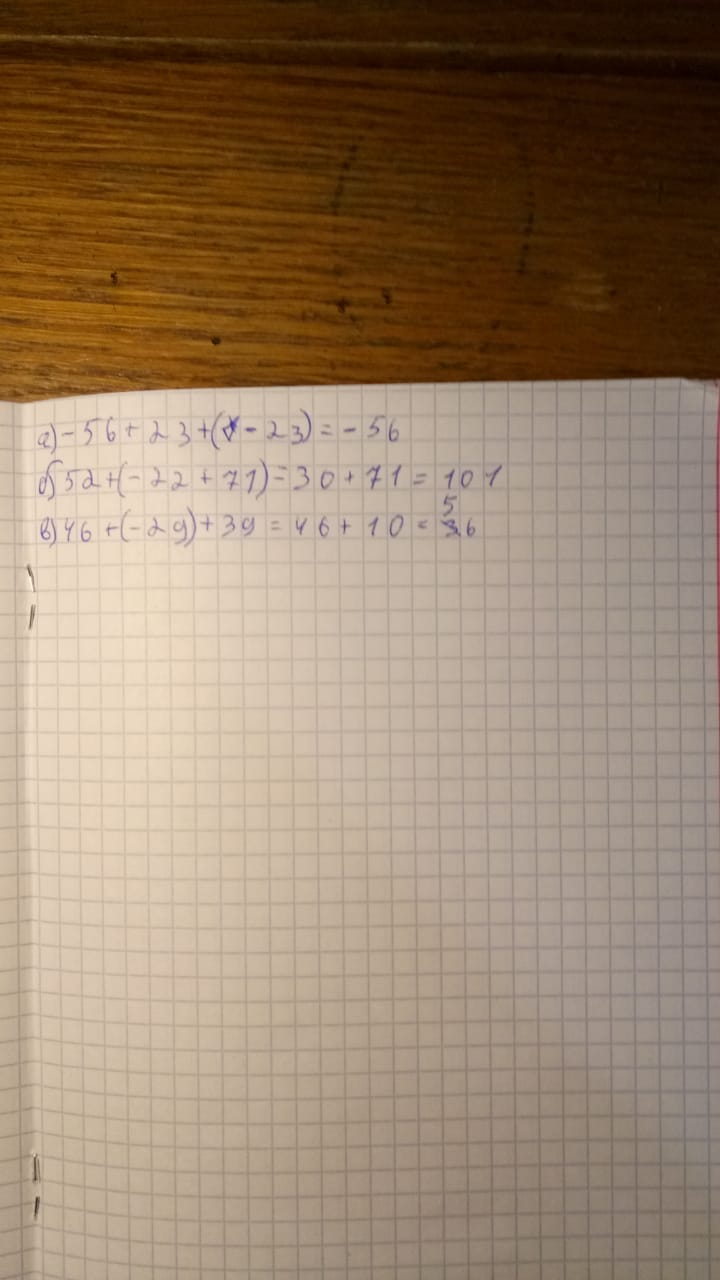 а) -56+23+(-23)=-56
б) 52+(-22+71)=30+71=101
в) 46+(-29)+39=46+10=56